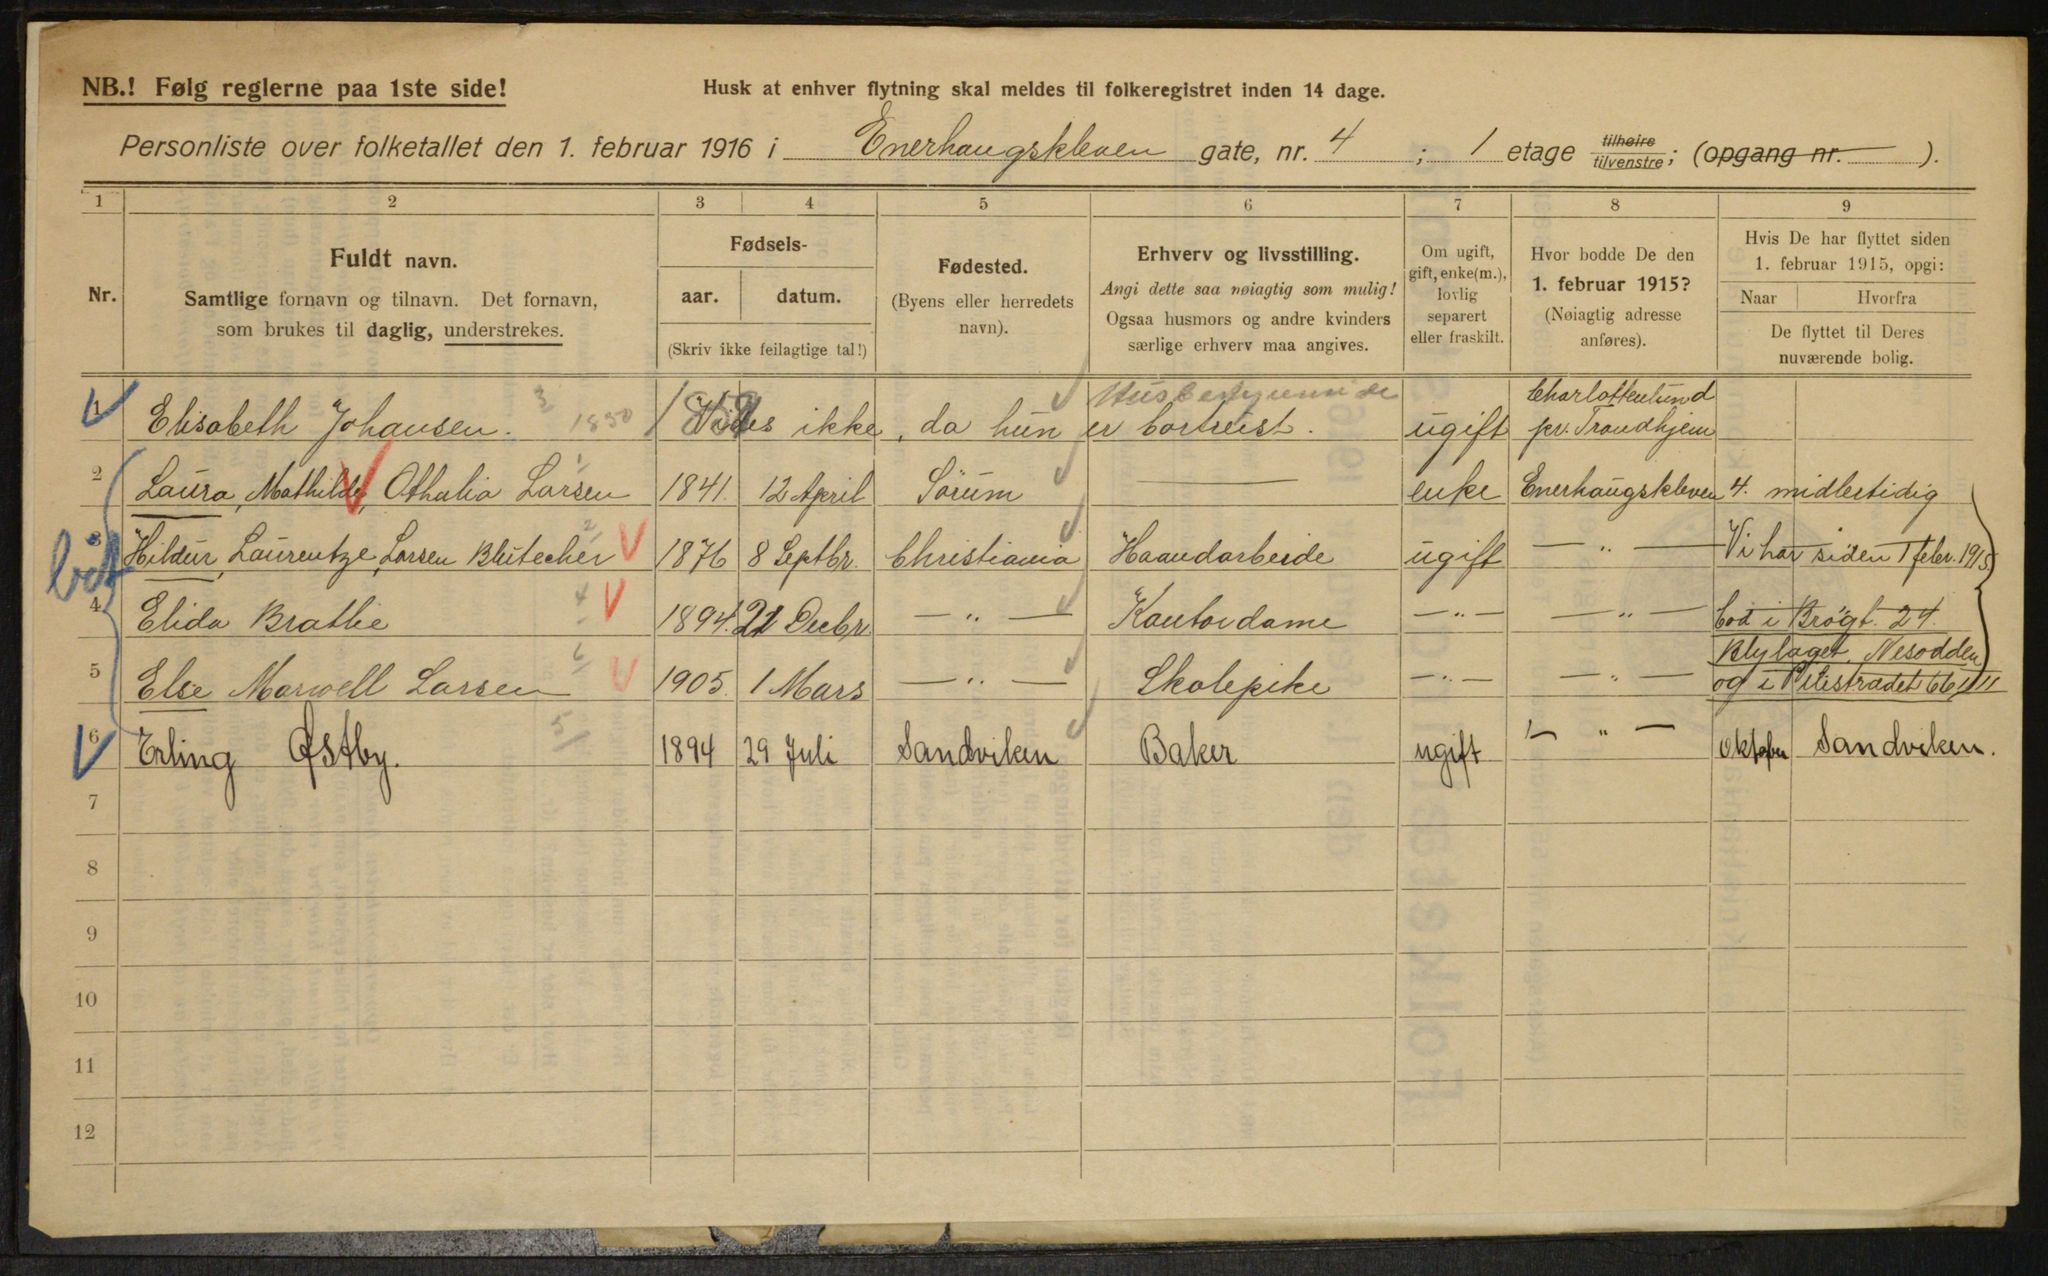 NB.! Følg reglerne paa 1ste side!
Husk at enhver flytning skal meldes til folkeregistret inden 14 dage.
Personliste over folketallet den 1. februar 1916 i Enerhaugskleven gate, nr. 4 ; 1 etage tilhøire tilvenstre; (opgang nr. ).
1 2 3 4 5 6 7 8 9
Nr.
Fuldt navn.
Samtlige fornavn og tilnavn. Det fornavn,
som brukes til daglig, understrekes.
Fødsels-
aar. datum.
(Skriv ikke feilagtige tal!)
Fødested.
(Byens eller herredets
navn).
Erhverv og livsstilling.
Angi dette saa nøiagtig som mulig!
Ogsaa husmors og andre kvinders
særlige erhverv maa angives.
Om ugift,
gift, enke(m.),
lovlig
separert
eller fraskilt.
Hvor bodde De den
1. februar 1915?
(Nøiagtig adresse
anføres).
Hvis De har flyttet siden
1. februar 1915, opgi:
Naar Hvorfra
De flyttet til Deres
nuværende bolig.
1 Elisabeth Johansen. 3 1850 Vides ikke, da hun er bortreist. ugift Charlottenlund
pr. Trondhjem
2 Laura, Mathilde, Othalia Larsen 1 1841. 12 April Sörum — enke Enerhaugskleven 4. midlertidig
3 Hildur, Laurentze, Larsen Blütecher 2 1876 8 Septbr. Christiania Haandarbeide ugift — " — Vi har siden 1 febr. 1915
4 Elida Brathe 4 1894. 21 Decbr — " — Kontordame — " — — " — bod i Brögt. 24.
Blylaget, Nesodden
5 Else Marwell Larsen 6 1905. 1 Mars — " — Skolepike — " — — " — og i Pilestrædet 66 III
6 Erling Østby. 5 1894 29 Juli Sandviken Baker ugift — " — Oktober Sandviken.
7
8
9
10
11
12